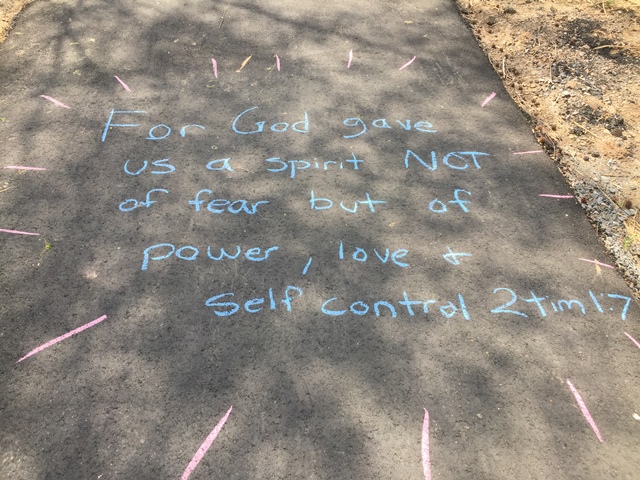 For God gave
us a spirit NOT
of fear but of
power, love +
Self control 2tim1.7